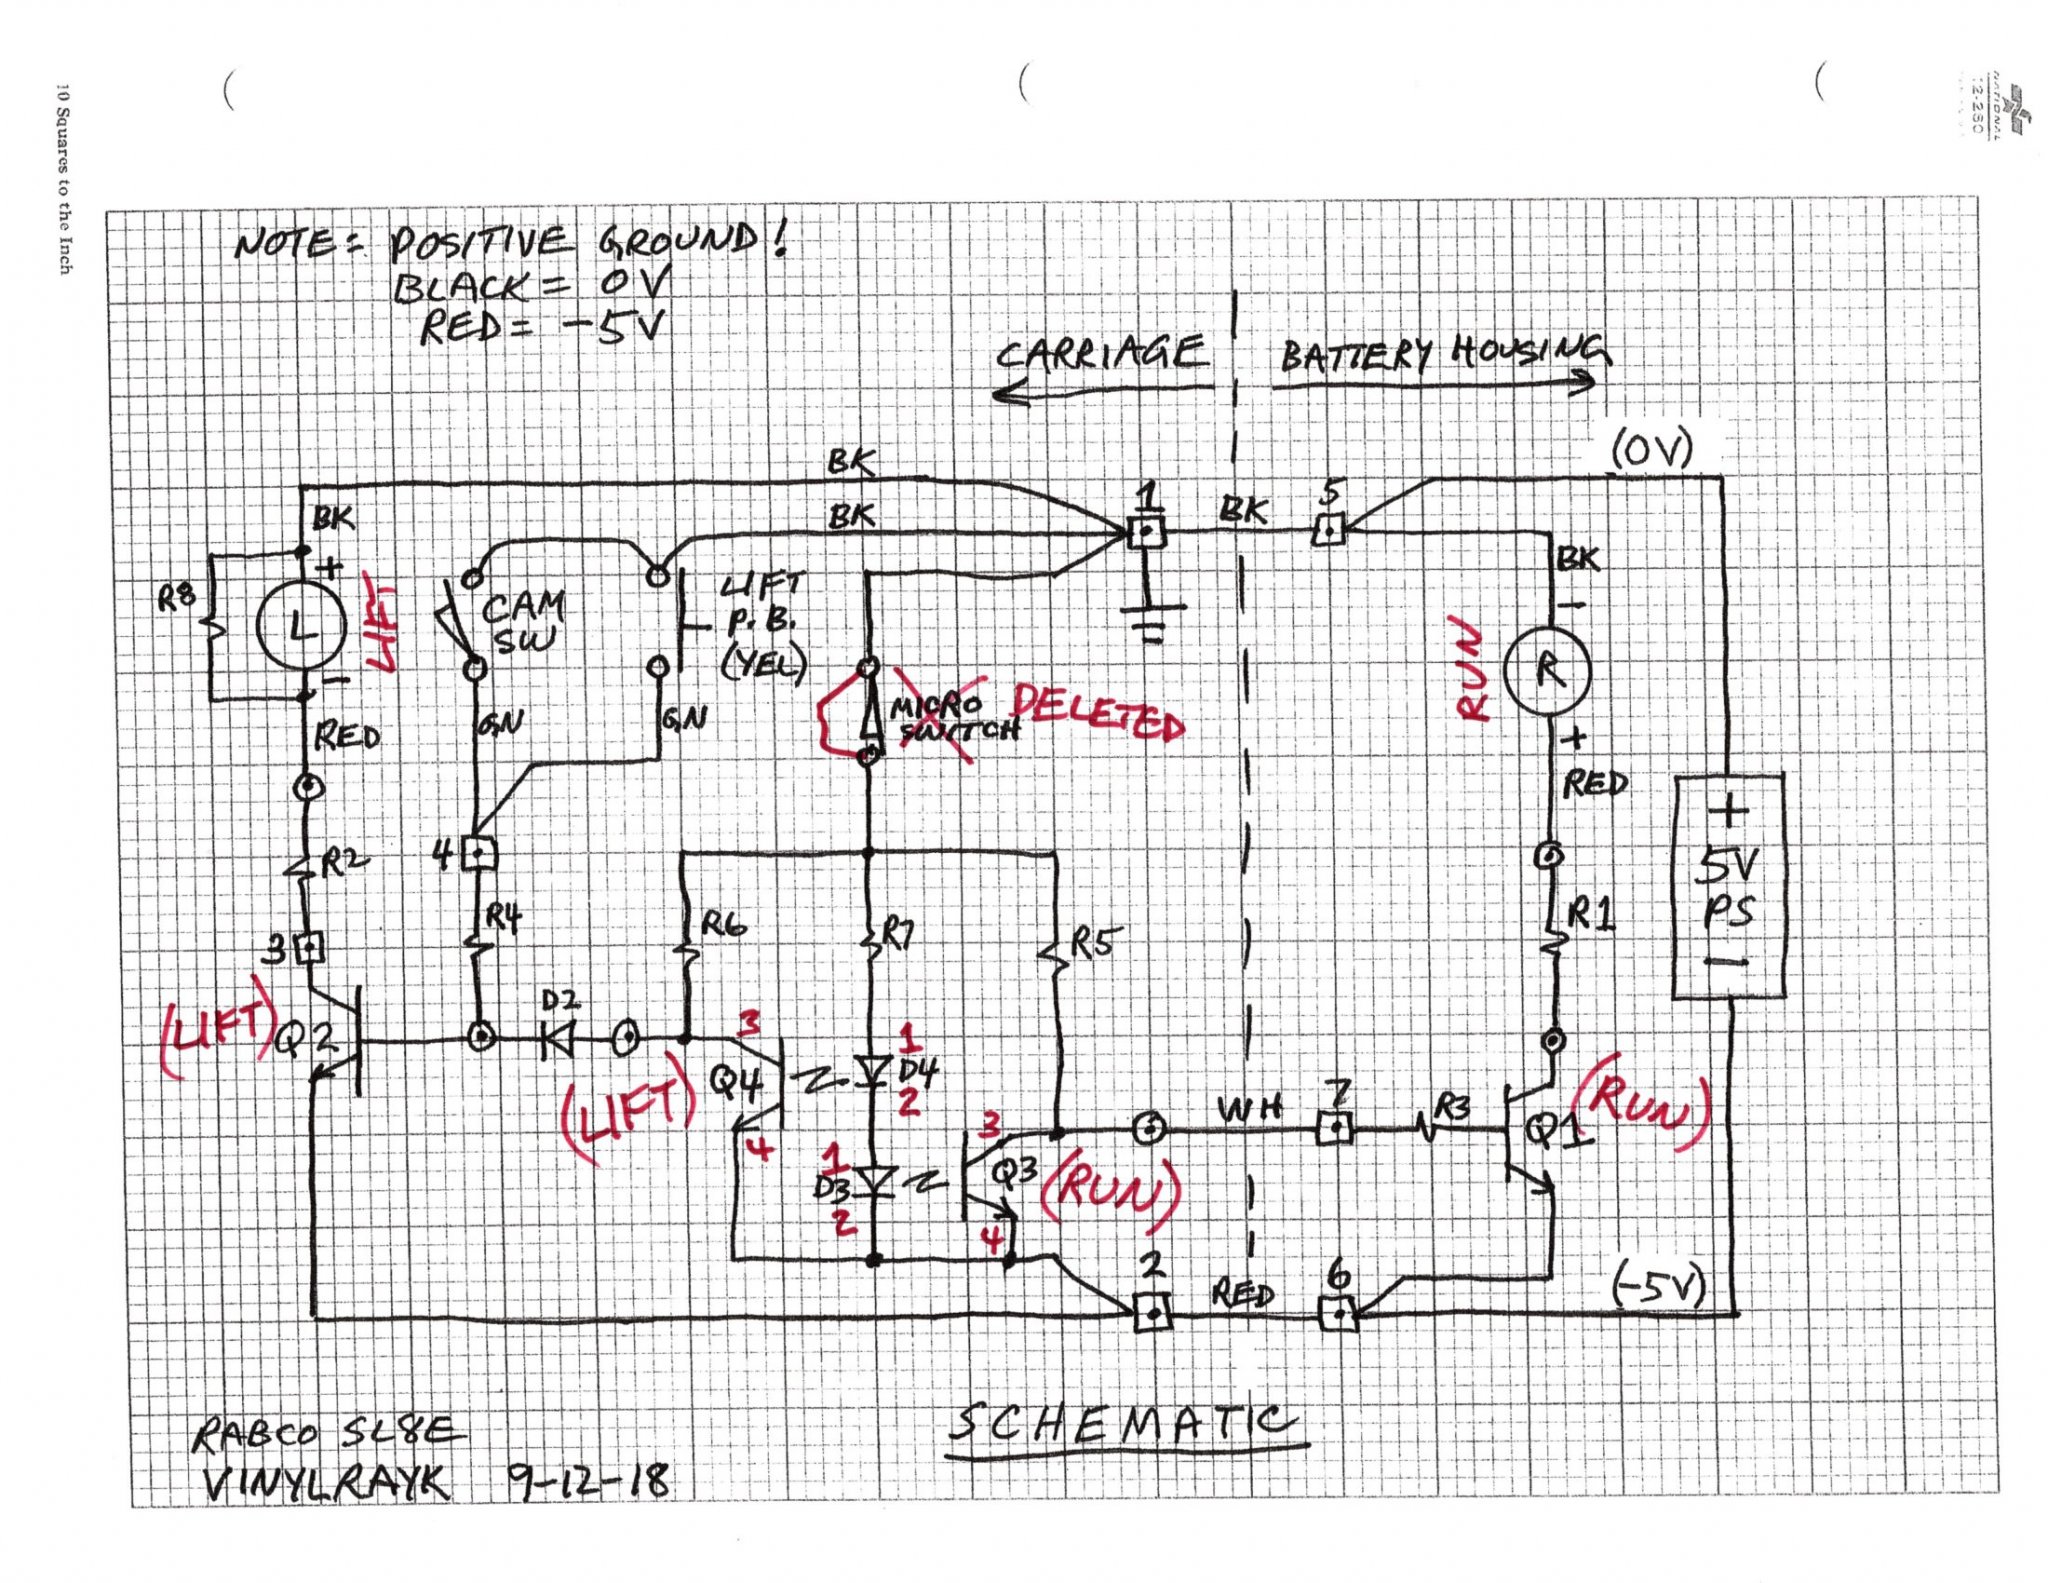 10 Squares to the Inch
NATIONAL
12-280
NOTE = POSITIVE GROUND!
BLACK = 0V
RED = -5V
CARRIAGE
BATTERY HOUSING
(0V)
BK
BK
BK
1
BK
5
BK
R8
+
L
-
LIFT
CAM
SW
LIFT
P.B.
(YEL)
-
RUN
R
+
RED
GN
GN
MICRO
SWITCH
DELETED
RED
+
5V
PS
-
R2
4
R4
R6
R7
R5
R1
3
(LIFT)
Q2
D2
3
Q4
4
(LIFT)
1
D4
2
1
D3
2
3
Q3
4
(RUN)
WH
7
R3
Q1
(RUN)
2
RED
6
(-5V)
SCHEMATIC
RABCO SL8E
VINYLRAYK 9-12-18